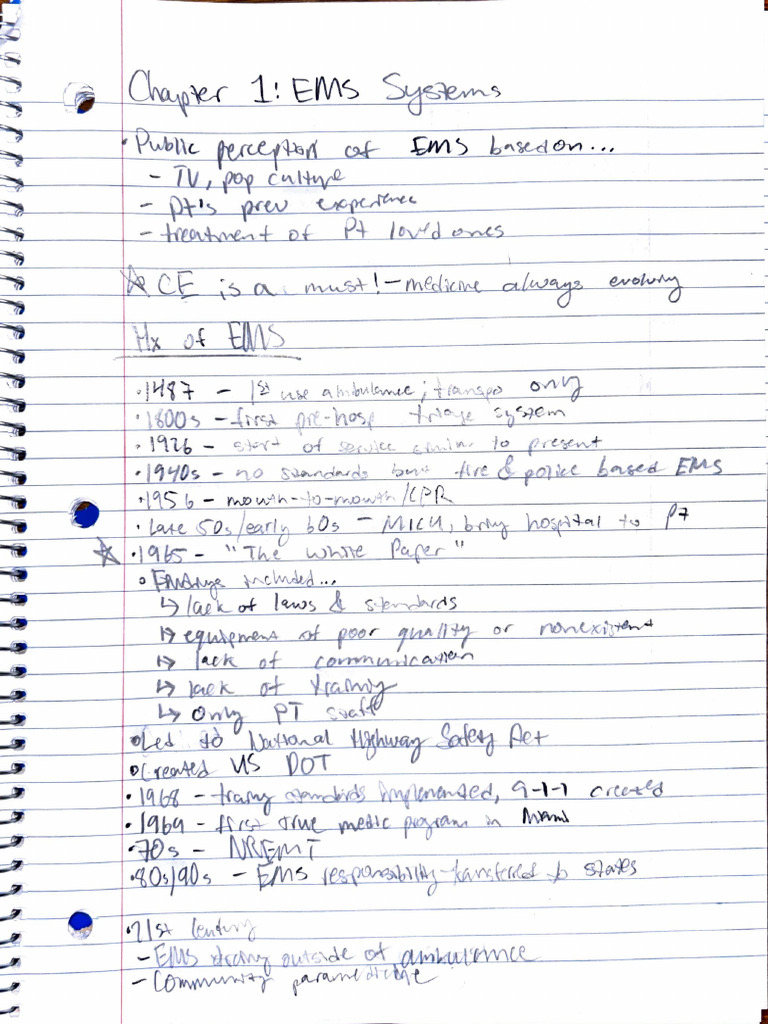 Chapter 1: EMS Systems
• Public perception of EMS based on...
- TV, pop culture
- pt's prev experience
- treatment of Pt loved ones
☆ CE is a must! - medicine always evolving
Hx of EMS
• 1487 - 1st use ambulance; transpo only
• 1800s - first pre-hosp triage system
• 1926 - start of service similar to present
• 1940s - no standards but fire & police based EMS
• 1956 - mouth-to-mouth/CPR
• Late 50s/early 60s - MICU, bring hospital to pt
☆ • 1965 - "The White Paper"
◦ Findings included...
↳ lack of laws & standards
↳ equipment of poor quality or nonexistent
↳ lack of communication
↳ lack of training
↳ only PT staff
• Led to National Highway Safety Act
• Created US DOT
• 1968 - training standards implemented, 9-1-1 created
• 1969 - first true medic program in Miami
• 70s - NREMT
• 80s/90s - EMS responsibility transferred to states
• 21st century
- EMS outside of ambulance
- Community paramedicine